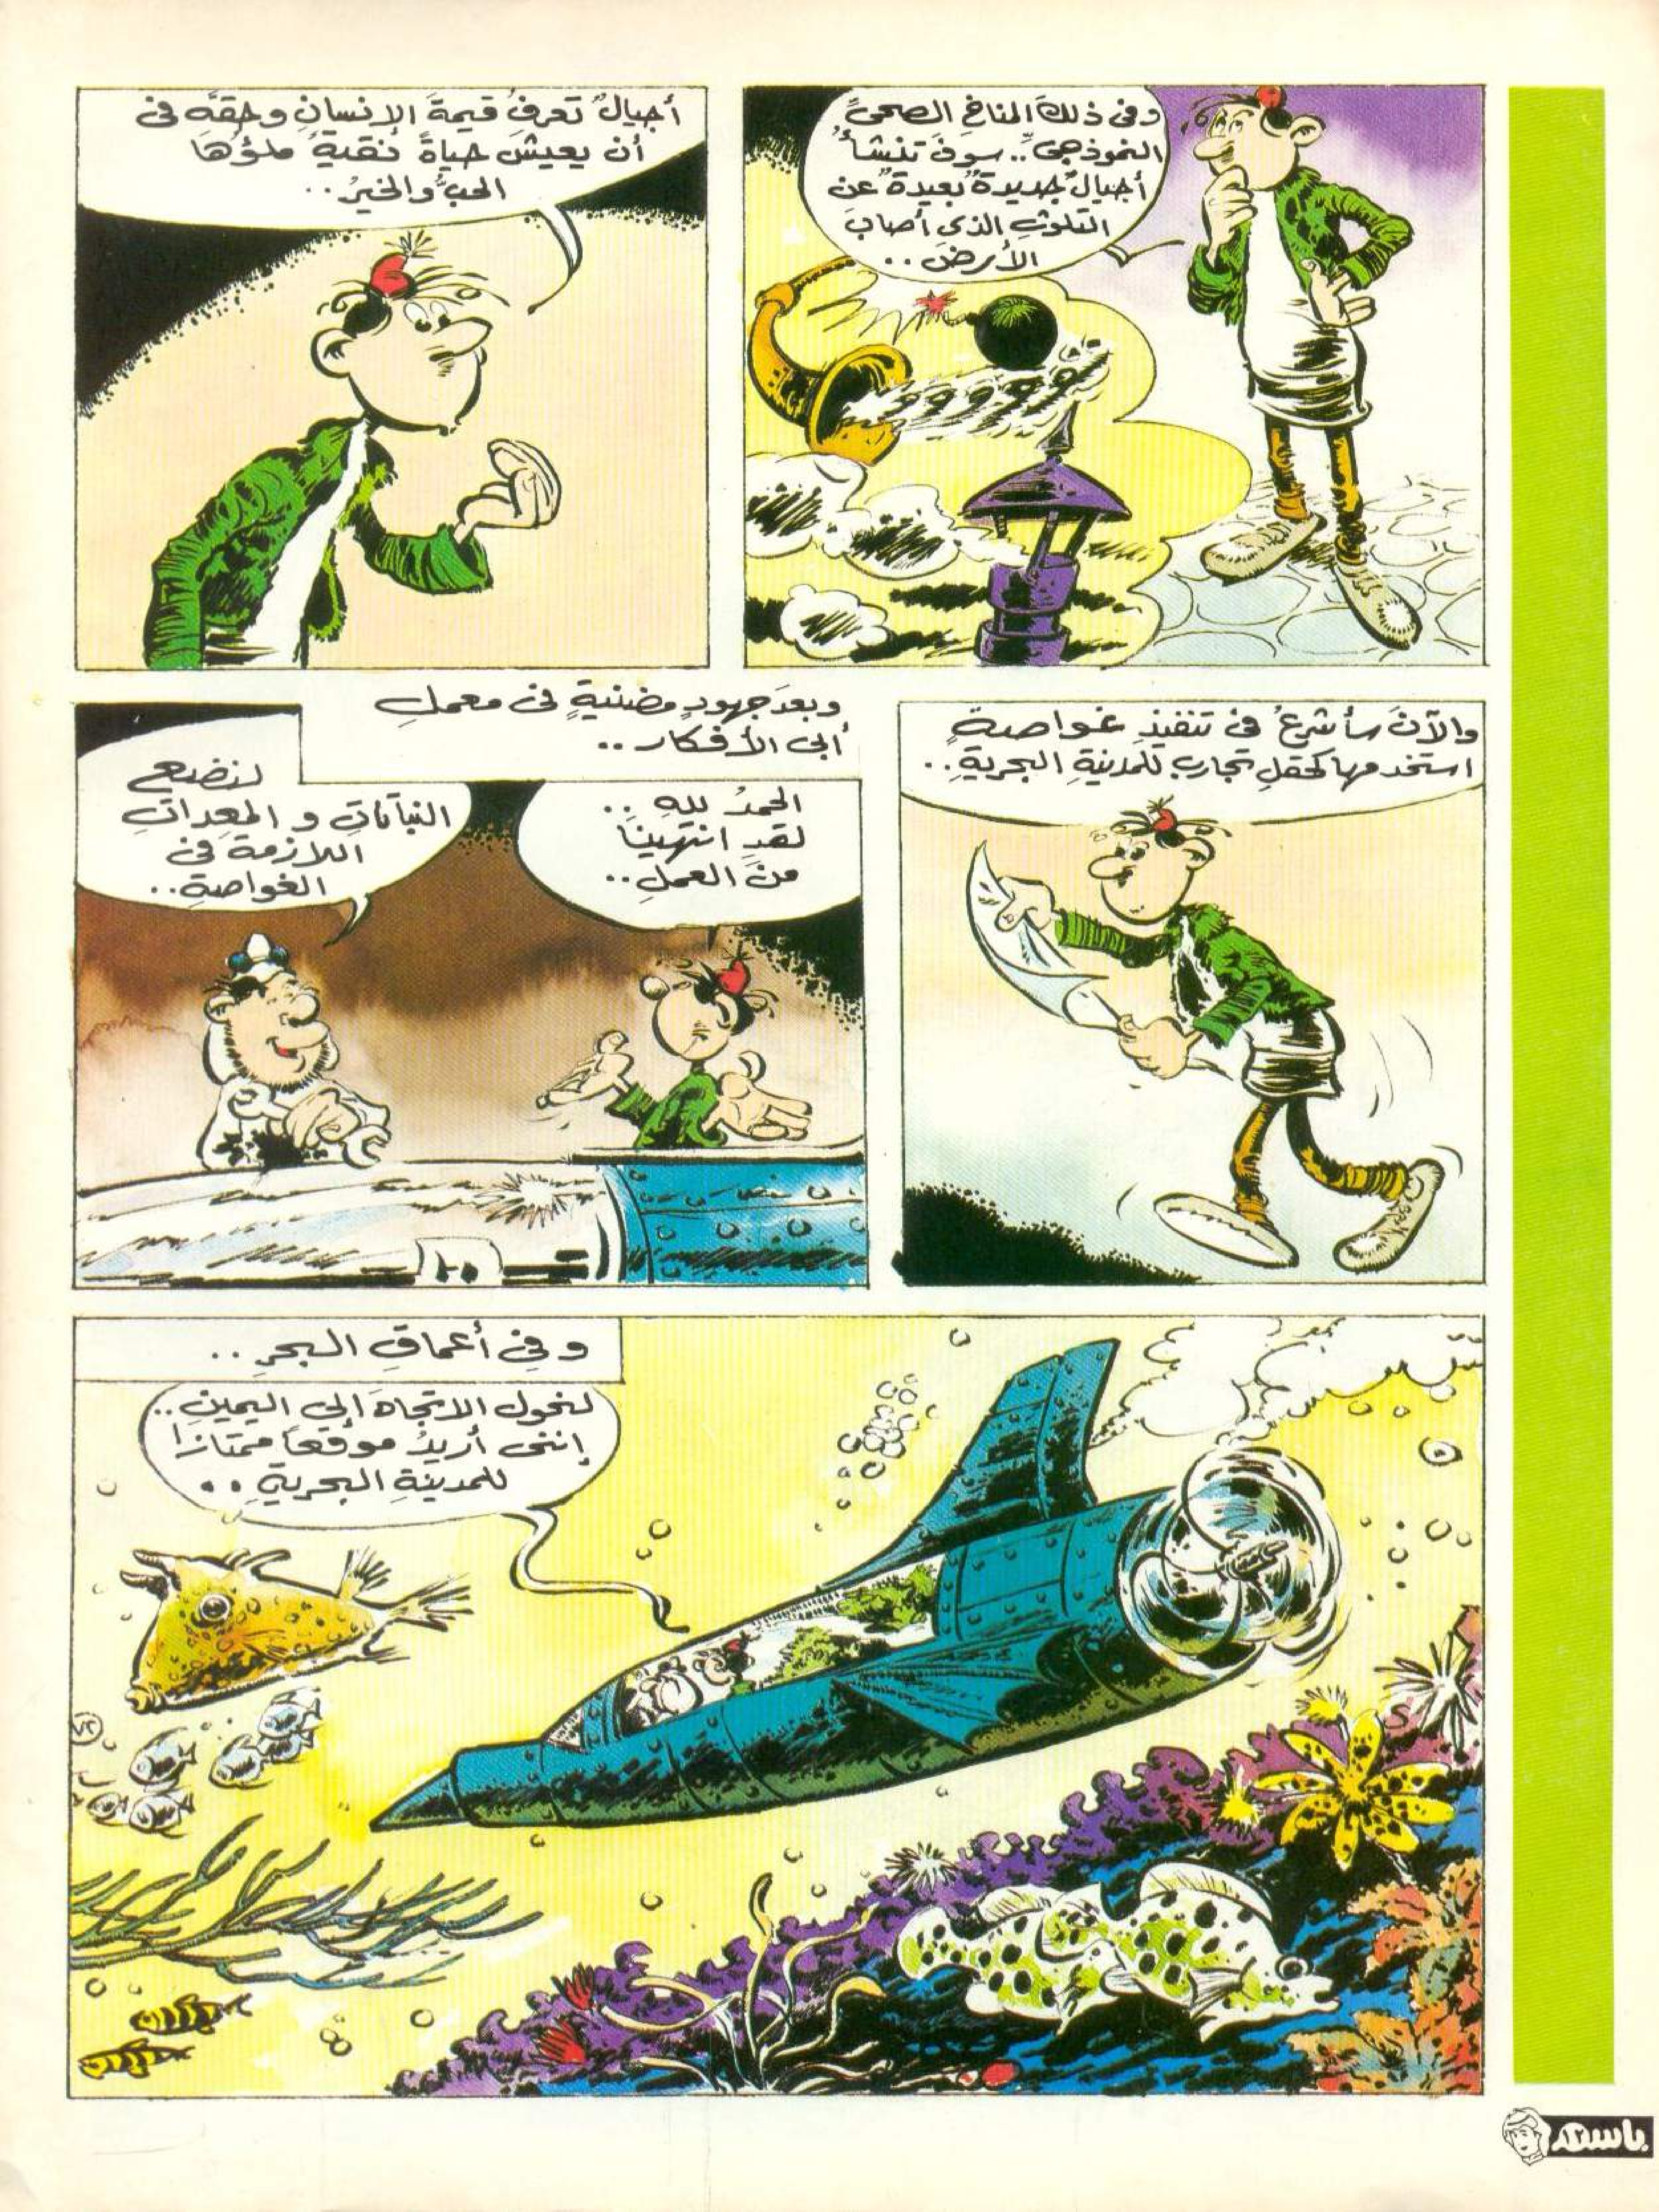 وفى ذلكَ المناخِ الصحىِّ
النموذجىِّ.. سوفَ تنشأُ
أجيالٌ جديدةٌ بعيدةٌ عن
التلوثِ الذى أصابَ
الأرضَ..
أجيالٌ تعرفُ قيمةَ الإنسانِ وحقَّه فى
أن يعيشَ حياةً نقيةً ملؤُها
الحبُّ والخيرُ..
والآنَ سأشرعُ فى تنفيذِ غواصةٍ
استخدمها كحقلِ تجاربِ للمدينةِ البحريةِ..
وبعدَ جهودٍ مضنيةٍ فى معملِ
أبى الأفكار..
الحمدُ للهِ..
لقدِ انتهينا
منَ العملِ..
لنضع
النباتاتِ و المعداتِ
اللازمة فى
الغواصةِ..
١٠
وفى أعماقِ البحرِ..
لنحول الاتجاهَ إلى اليمينِ..
إننى أريدُ موقعاً ممتازاً
للمدينةِ البحريةِ..
٧٢
باسم